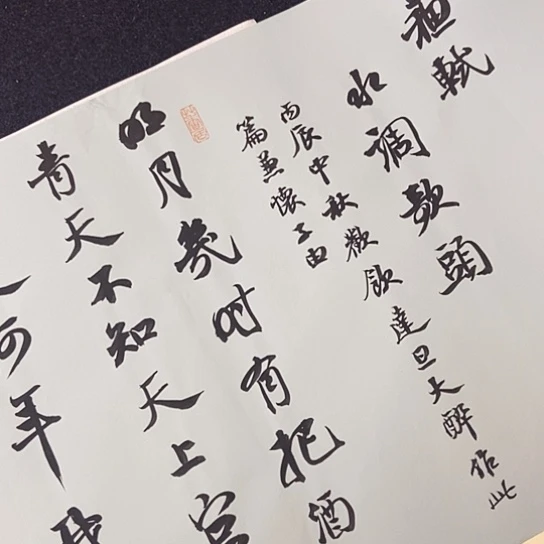 軾
水調歌頭
丙辰中秋歡飲達旦大醉作此
篇兼懷子由
明月幾时有把酒
青天不知天上宮
何年我